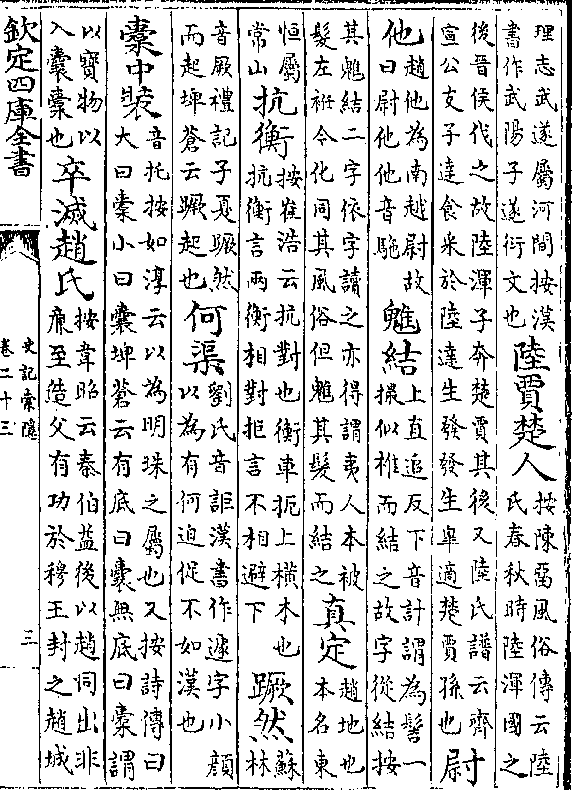 理志武遂屬河間按漢
書作武陽子遂衍文也
陸賈楚人
按陳畱風俗傳云陸
氏春秋時陸渾國之
後晉侯伐之故陸渾子奔楚賈其後又陸氏譜云齊
宣公支子達食采於陸達生發發生臯適楚賈孫也
尉
他
趙他為南越尉故
曰尉他他音馳
魋結
上直追反下音計謂為髻一
撮似椎而結之故字從結按
其魋結二字依字讀之亦得謂夷人本被
髮左衽今化同其風俗但魋其髮而結之
真定
趙地也
本名東
恒屬
常山
抗衡
按崔浩云抗對也衡車扼上橫木也
抗衡言兩衡相對拒言不相避下
蹶然
蘇
林
音厥禮記子夏蹶然
而起埤蒼云蹶起也
何渠
劉氏音詎漢書作遽字小顔
以為有何迫促不如漢也
橐中裝
音托按如淳云以為明珠之屬也又按詩傳曰
大曰橐小曰囊埤蒼云有底曰囊無底曰橐謂
以寶物以
入囊橐也
卒滅趙氏
按韋昭云秦伯益後以趙同出非
廉至造父有功於穆王封之趙城
欽定四庫全書
史記索隱
卷二十三
三